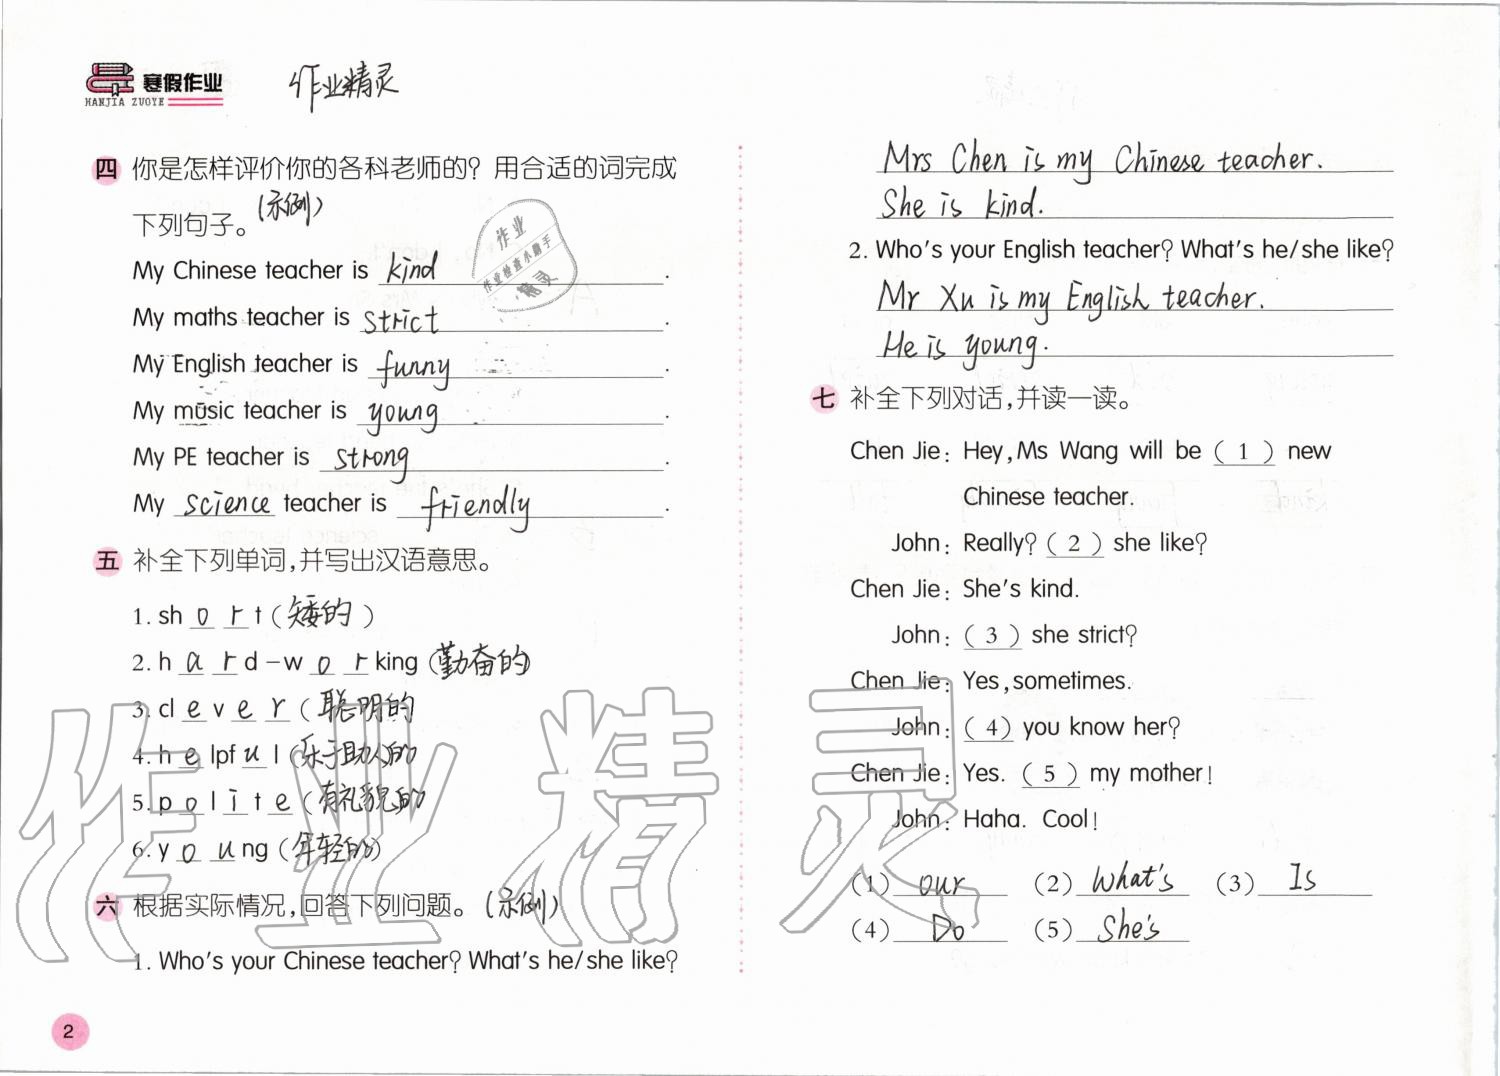 寒假作业
HANJIA ZUOYE
作业精灵
四 你是怎样评价你的各科老师的？用合适的词完成
下列句子。(示例)
My Chinese teacher is kind.
My maths teacher is strict.
My English teacher is funny.
My music teacher is young.
My PE teacher is strong.
My science teacher is friendly.
五 补全下列单词，并写出汉语意思。
1. sh o r t (矮的)
2. h a r d-w o r king (勤奋的)
3. cl e v e r (聪明的
4. h e lpf u l (乐于助人的
5. p o l i t e (有礼貌的
6. y o u ng (年轻的)
六 根据实际情况，回答下列问题。(示例)
1. Who's your Chinese teacher? What's he/she like?
2
Mrs Chen is my Chinese teacher.
She is kind.
2. Who's your English teacher? What's he/she like?
Mr Xu is my English teacher.
He is young.
七 补全下列对话，并读一读。
Chen Jie: Hey, Ms Wang will be (1) new
Chinese teacher.
John: Really? (2) she like?
Chen Jie: She's kind.
John: (3) she strict?
Chen Jie: Yes, sometimes.
John: (4) you know her?
Chen Jie: Yes. (5) my mother!
John: Haha. Cool!
(1) our (2) What's (3) Is
(4) Do (5) She's
作业
作业检查小助手
精灵
作业精灵